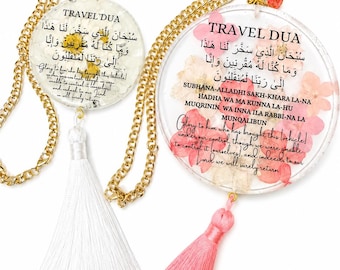 TRAVEL DUA
سُبْحَانَ الَّذِي سَخَّرَ لَنَا هَٰذَا
وَمَا كُنَّا لَهُ مُقْرِنِينَ وَإِنَّا
إِلَىٰ رَبِّنَا لَمُنْقَلِبُونَ
TRAVEL DUA
سُبْحَانَ الَّذِي سَخَّرَ لَنَا هَٰذَا
وَمَا كُنَّا لَهُ مُقْرِنِينَ وَإِنَّا
إِلَىٰ رَبِّنَا لَمُنْقَلِبُونَ
SUBHANA-ALLADHI SAKH-KHARA LA-NA
HADHA WA MA KUNNA LA-HU
MUQRININ, WA INNA ILA RABBI-NA LA
MUNQALIBUN
Glory to him who has brought this [vehicle]
under our control, though we were unable
to control it ourselves, and indeed to our
Lord we will surely return